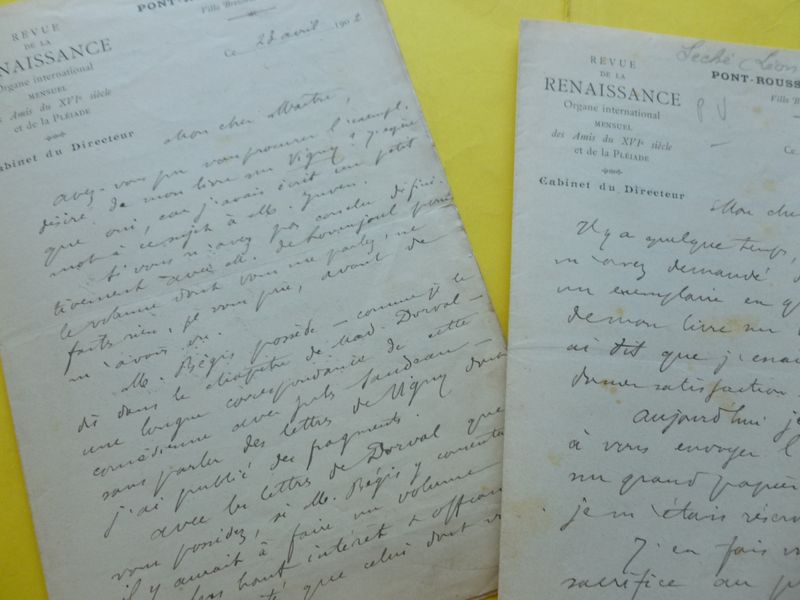 REVUE
DE LA
NAISSANCE
Organe international
MENSUEL
Amis du XVIe siècle
et de la PLÉIADE
Cabinet du Directeur
PONT-ROUS
Villa
Ce 28 avril 1902
Mon cher Maître,
avez-vous pu vous procurer l'exempl.
désiré de mon livre sur Vigny? J'espère
que oui, car j'avais écrit un petit
mot à ce sujet à M. Juven.
Si vous n'avez pas conclu défini-
tivement avec M. de Lovenjoul pour
le volume dont vous me parlez, ne
faites rien, je vous prie, avant de
m'avoir vu.
M. Bégis possède – comme je le
dis dans le chapitre de Mad. Dorval –
une longue correspondance de cette
comédienne avec Jules Sandeau –
sans parler des lettres de Vigny dont
j'ai publié des fragments.
Avec les lettres de Dorval que
vous possédez, si M. Bégis y consentait
il y aurait à faire un volume
plus haut intérêt
que celui dont
Séché (Léon
REVUE
DE LA
RENAISSANCE
Organe international
MENSUEL
des Amis du XVIe siècle
et de la PLÉIADE
Cabinet du Directeur
PONT-ROUSS
Villa
Ce
Mon cher
Il y a quelque temps,
m'avez demandé
un exemplaire en
de mon livre sur
ai dit que j'
donner satisfaction
aujourd'hui je
à vous envoyer l'
un grand papier
je m'étais réser
J'en fais
sacrifice au